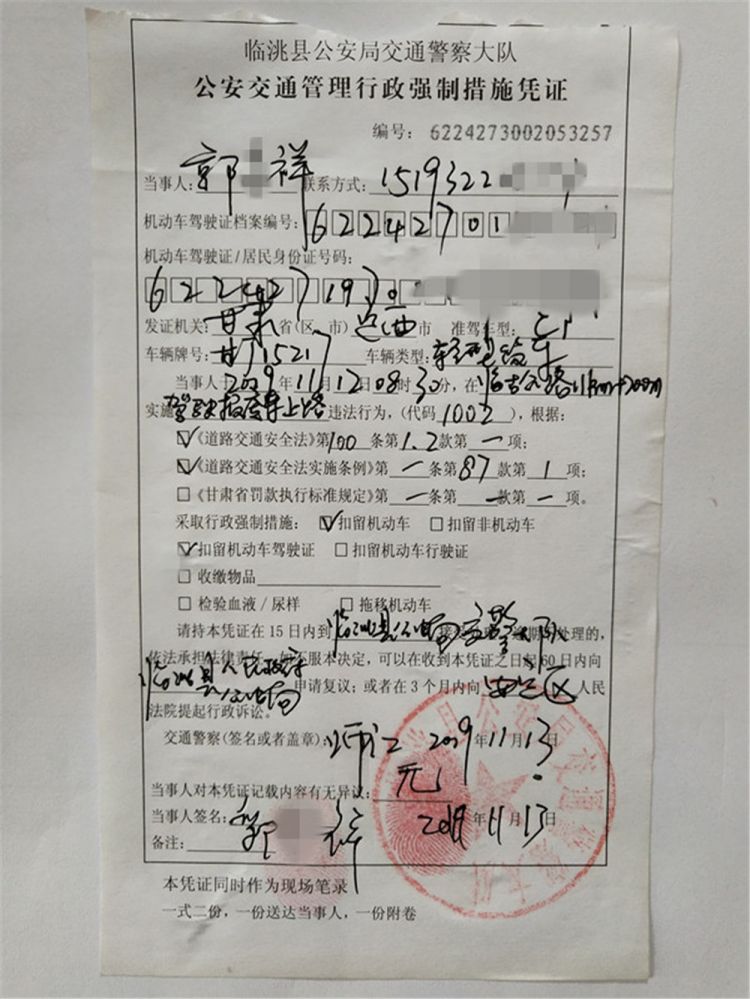 临洮县公安局交通警察大队
公安交通管理行政强制措施凭证
编号: 6224273002053257
当事人: 郭 祥 联系方式: 1519322
机动车驾驶证档案编号: 62242701
机动车驾驶证/居民身份证号码:
622427197
发证机关: 甘肃 省(区、市) 定西 市 准驾车型:
车辆牌号: 车辆类型:
当事人于 2019 年 11 月 12 日 08 时 30 分, 在
实施 驾驶报废车上路 违法行为,(代码 1002 ),根据:
☑《道路交通安全法》第 100 条第 1.2 款第 一 项;
☑《道路交通安全法实施条例》第 一 条第 87 款第 1 项;
□《甘肃省罚款执行标准规定》第 一 条第 一 款第 一 项。
采取行政强制措施: ☑扣留机动车 □扣留非机动车
☑扣留机动车驾驶证 □扣留机动车行驶证
□收缴物品
□检验血液/尿样 □拖移机动车
请持本凭证在15日内到 临洮县公安局交警大队 接受处理。逾期不处理的,
依法承担法律责任。如不服本决定,可以在收到本凭证之日起60日内向
临洮县人民政府 申请复议;或者在3个月内向 安定区 人民
法院提起行政诉讼。
交通警察(签名或者盖章): 2019 年 11 月 13 日
当事人对本凭证记载内容有无异议: 无
当事人签名: 郭 祥 2019 年 11 月 13 日
备注:
本凭证同时作为现场笔录
一式二份,一份送达当事人,一份附卷